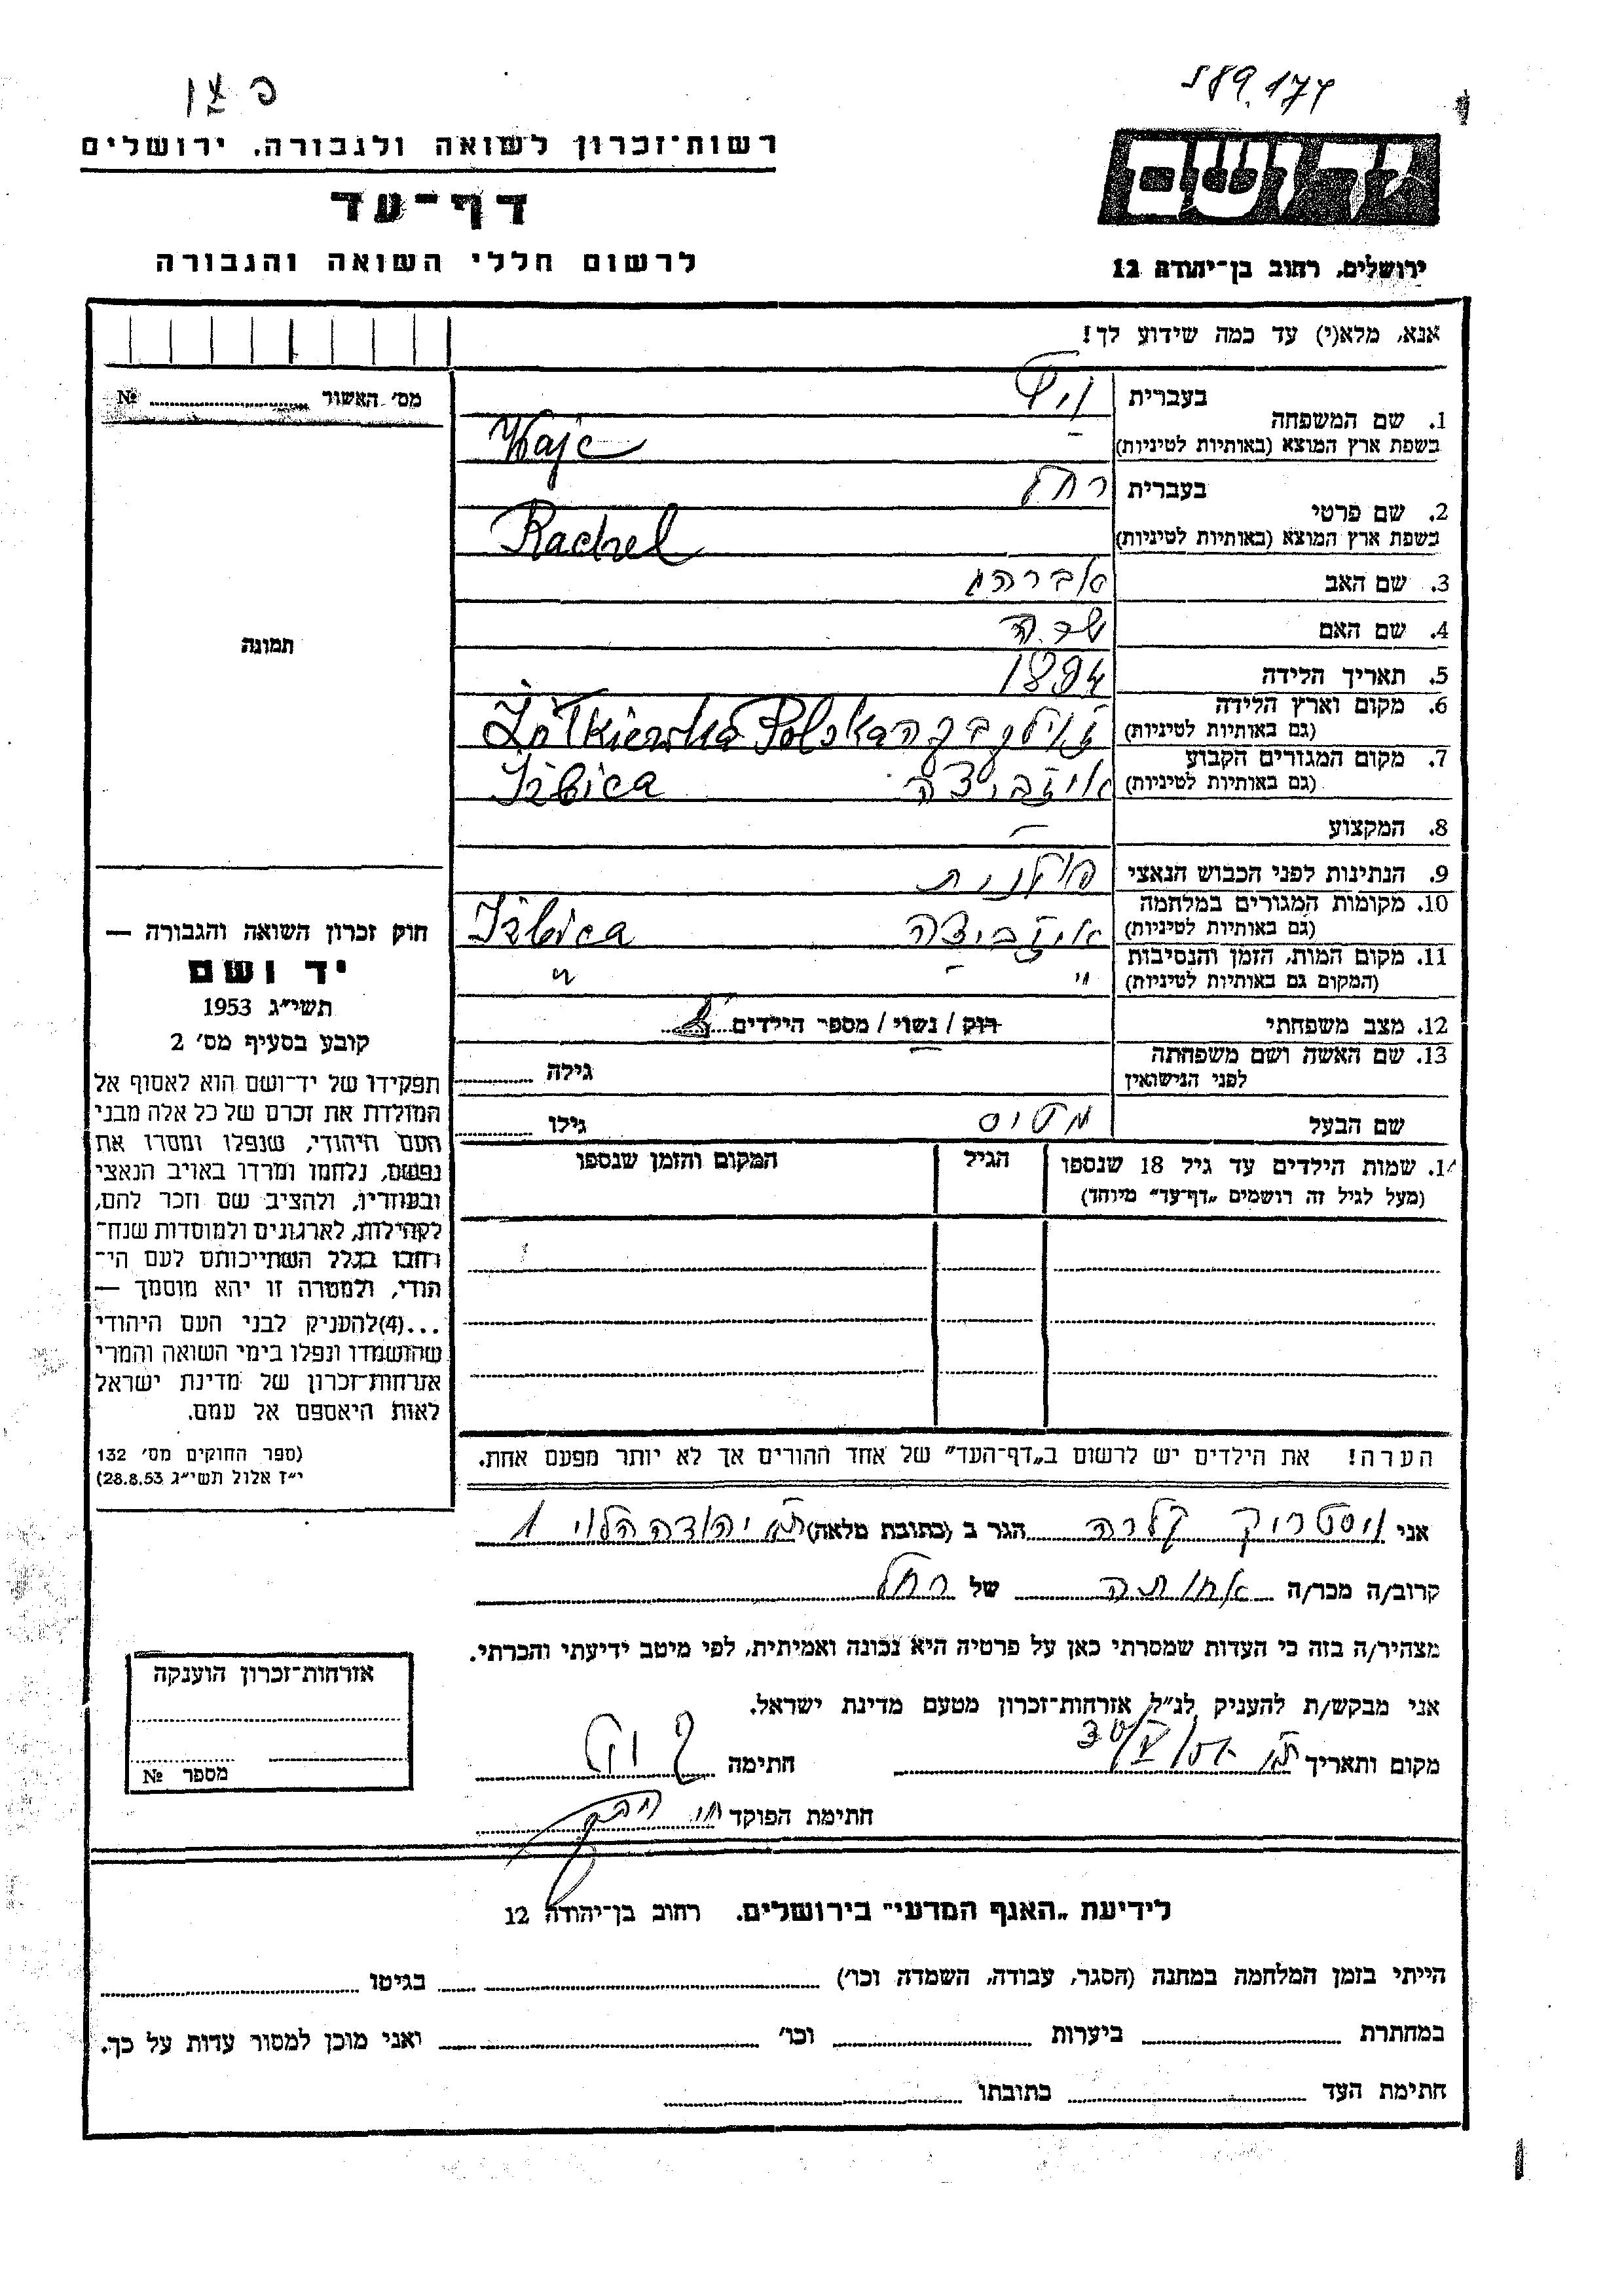 589.174
רשות־זכרון לשואה ולגבורה. ירושלים
דף־עד
לרשום חללי השואה והגבורה
ירושלים, רחוב בן־יהודה 12
אנא, מלא(י) עד כמה שידוע לך!
מס׳ האשור № 
בעברית
1. שם המשפחה
בשפת ארץ המוצא (באותיות לטיניות) Wajc
בעברית רחל
2. שם פרטי
בשפת ארץ המוצא (באותיות לטיניות) Rachel
3. שם האב אברהם
4. שם האם שרה
5. תאריך הלידה 1894
6. מקום וארץ הלידה
(גם באותיות לטיניות) Żółkiewka Polska
7. מקום המגורים הקבוע
(גם באותיות לטיניות) איזביצה Izbica
8. המקצוע —
9. הנתינות לפני הכבוש הנאצי פולנית
10. מקומות המגורים במלחמה
(גם באותיות לטיניות) איזביצה Izbica
11. מקום המות, הזמן והנסיבות
(המקום גם באותיות לטיניות) " — "
12. מצב משפחתי רוק / נשוי / מספר הילדים
13. שם האשה ושם משפחתה — גילה
לפני הנישואין
שם הבעל מטיס גילו
14. שמות הילדים עד גיל 18 שנספו הגיל המקום והזמן שנספו
(מעל לגיל זה רושמים „דף־עד״ מיוחד)
הערה! את הילדים יש לרשום ב„דף־העד״ של אחד ההורים אך לא יותר מפעם אחת.
תמונה
חוק זכרון השואה והגבורה —
יד ושם
תשי״ג 1953
קובע בסעיף מס׳ 2
תפקידו של יד־ושם הוא לאסוף אל
המולדת את זכרם של כל אלה מבני
העם היהודי, שנפלו ומסרו את
נפשם, נלחמו ומרדו באויב הנאצי
ובעוזריו, ולהציב שם וזכר להם,
לקהילות, לארגונים ולמוסדות שנח־
רחבו בגלל השתייכותם לעם הי־
הודי, ולמטרה זו יהא מוסמך —
...(4)להעניק לבני העם היהודי
שהושמדו ונפלו בימי השואה והמרי
אזרחות־זכרון של מדינת ישראל
לאות היאספם אל עמם.
(ספר החוקים מס׳ 132
י״ז אלול תשי״ג 28.8.53)
אני ויסטריק קלרה הגר ב (כתובת מלאה) ת״א יהודה הלוי 1
קרוב/ה מכר/ה אחותה של רחל
מצהיר/ה בזה כי העדות שמסרתי כאן על פרטיה היא נכונה ואמיתית, לפי מיטב ידיעתי והכרתי.
אני מבקש/ת להעניק לנ״ל אזרחות־זכרון מטעם מדינת ישראל.
מקום ותאריך ת״א חתימה
חתימת הפוקד
אזרחות־זכרון הוענקה
מספר №
לידיעת „האגף המדעי״ בירושלים. רחוב בן־יהודה 12
הייתי בזמן המלחמה במחנה (הסגר, עבודה, השמדה וכו׳) בגיטו
במחתרת ביערות וכו׳ ואני מוכן למסור עדות על כך.
חתימת העד כתובתו